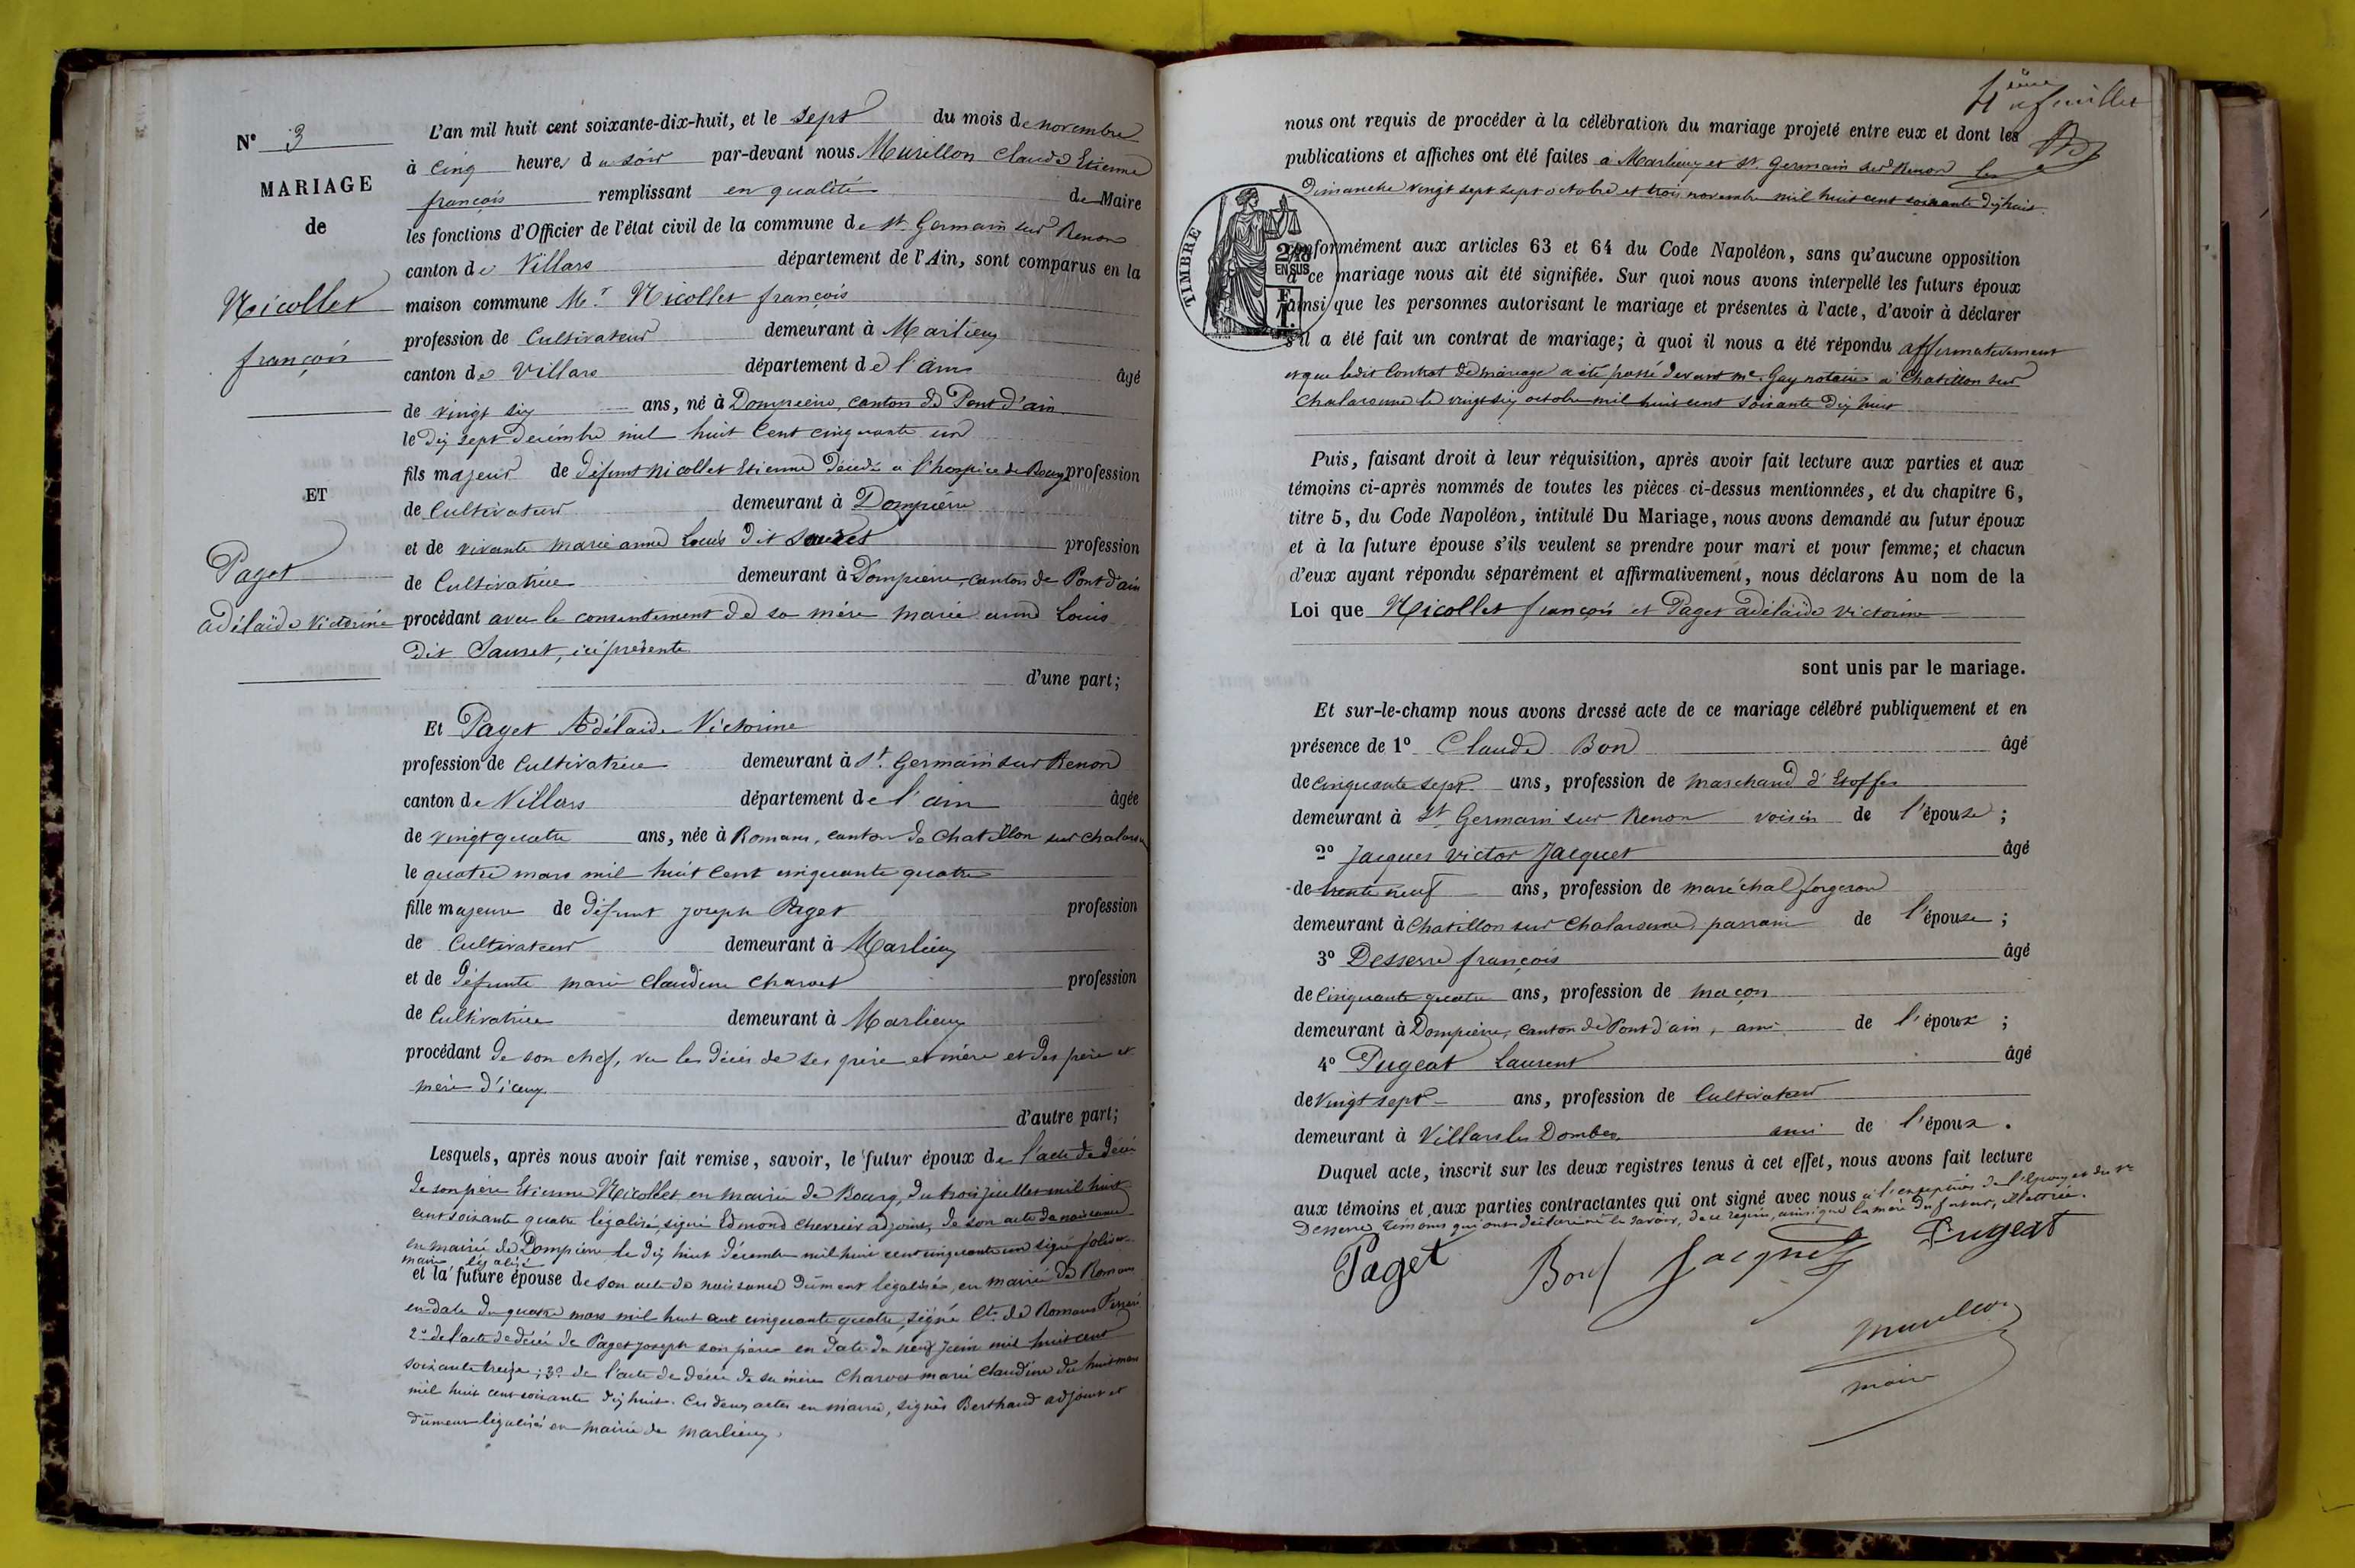 N° 3
MARIAGE
de
Nicollet
françois
ET
Paget
adélaïde Victorine
L'an mil huit cent soixante-dix-huit, et le sept du mois de novembre
à cinq heures du soir par-devant nous Murillon Claude Etienne
françois remplissant en qualité de Maire
les fonctions d'Officier de l'état civil de la commune de st. Germain sur Renon
canton de Villars département de l'Ain, sont comparus en la
maison commune Mr. Nicollet françois
profession de Cultivateur demeurant à Marlieux
canton de Villars département de l'ain âgé
de vingt six ans, né à Dompierre, canton de Pont d'ain
le dix sept decémbre mil huit Cent cinquante un
fils majeur de défunt nicollet Etienne décédé à l'hospice de Bourg profession
de Cultivateur demeurant à Dompierre
et de vivante marie anne Louis dit Sauset profession
de Cultivatrice demeurant à Dompierre, canton de Pont d'ain
procédant avec le consentement de sa mère marie anne Louis
dit Sauset, ici présente
d'une part;
Et Paget Adélaïde Victorine
profession de Cultivatrice demeurant à St. Germain sur Renon
canton de Villars département de l'ain âgée
de vingt quatre ans, née à Romans, canton de Chatillon sur Chalaronne
le quatre mars mil huit Cent cinquante quatre
fille majeure de défunt joseph Paget profession
de Cultivateur demeurant à Marlieux
et de défunte marie Claudine Charvet profession
de Cultivatrice demeurant à Marlieux
procédant de son chef, vu les décès de ses père et mère et des père et
mère d'iceux
d'autre part;
Lesquels, après nous avoir fait remise, savoir, le futur époux de l'acte de décès
de son père Etienne Nicollet en mairie de Bourg, du trois juillet mil huit
cent soixante quatre légalisé, signé Edmond Chevrier adjoint, de son acte de naissance
en mairie de Dompierre le dix huit décembre mil huit cent cinquante un signé
maire légalisé
et la future épouse de son acte de naissance dûment légalisée, en mairie de Romans
en date du quatre mars mil huit cent cinquante quatre, signé Cte. de Romans
2° de l'acte de décès de Paget joseph son père en date du neuf juin mil huit cent
soixante treize; 3° de l'acte de décès de sa mère Charvet marie Claudine du huit mars
mil huit cent soixante dix huit. Ces deux actes en mairie, signés Berthaud adjoint et
dûment légalisés en mairie de Marlieux.
4ème feuillet
nous ont requis de procéder à la célébration du mariage projeté entre eux et dont les
publications et affiches ont été faites à Marlieux et st. Germain sur Renon les
Dimanche vingt sept sept octobre et trois novembre mil huit cent soixante dix huit
TIMBRE
EN SUS
conformément aux articles 63 et 64 du Code Napoléon, sans qu'aucune opposition
à ce mariage nous ait été signifiée. Sur quoi nous avons interpellé les futurs époux
ainsi que les personnes autorisant le mariage et présentes à l'acte, d'avoir à déclarer
s'il a été fait un contrat de mariage; à quoi il nous a été répondu affirmativement
et que ledit Contrat de mariage a été passé devant me. Gay notaire à Chatillon sur
Chalaronne le vingt six octobre mil huit cent soixante dix huit
Puis, faisant droit à leur réquisition, après avoir fait lecture aux parties et aux
témoins ci-après nommés de toutes les pièces ci-dessus mentionnées, et du chapitre 6,
titre 5, du Code Napoléon, intitulé Du Mariage, nous avons demandé au futur époux
et à la future épouse s'ils veulent se prendre pour mari et pour femme; et chacun
d'eux ayant répondu séparément et affirmativement, nous déclarons Au nom de la
Loi que Nicollet françois et Paget adélaïde victorine
sont unis par le mariage.
Et sur-le-champ nous avons dressé acte de ce mariage célébré publiquement et en
présence de 1° Claude Bon âgé
de cinquante sept ans, profession de marchand d'Etoffes
demeurant à St Germain sur Renon voisin de l'épouse;
2° Jacques victor Jacquet âgé
de trente neuf ans, profession de maréchal forgeron
demeurant à Chatillon sur Chalaronne parrain de l'épouse;
3° Desserre françois âgé
de Cinquante quatre ans, profession de maçon
demeurant à Dompierre, canton de Pont d'ain, ami de l'époux;
4° Pugeat Laurent âgé
de vingt sept ans, profession de Cultivateur
demeurant à Villars les Dombes ami de l'époux.
Duquel acte, inscrit sur les deux registres tenus à cet effet, nous avons fait lecture
aux témoins et aux parties contractantes qui ont signé avec nous à l'exception de l'époux et du sr
Desserre, témoins qui ont déclaré ne le savoir, de ce requis, ainsi que la mère du futur, illettrée.
Paget Bon Jacquet Pugeat
Murillon
maire